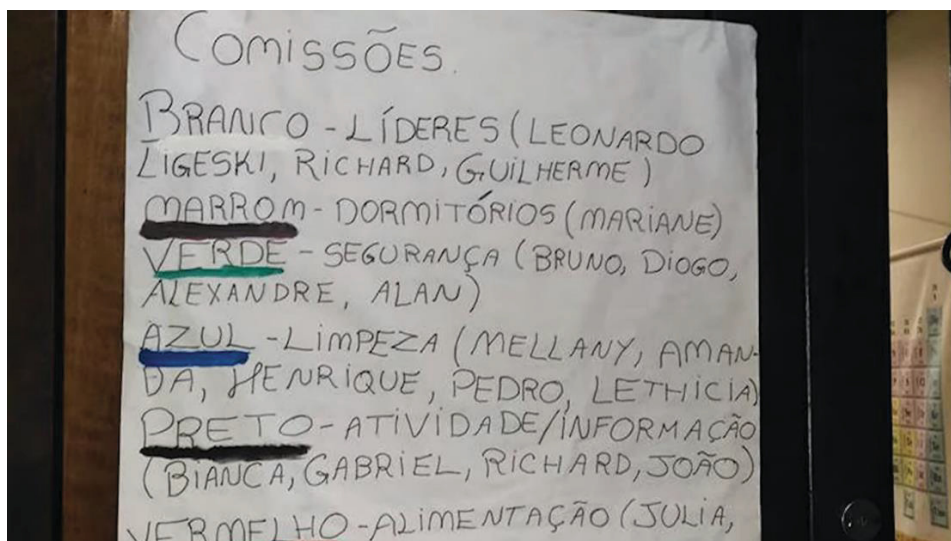 COMISSÕES.
BRANCO - LÍDERES (LEONARDO
LIGESKI, RICHARD, GUILHERME)
MARROM - DORMITÓRIOS (MARIANE)
VERDE - SEGURANÇA (BRUNO, DIOGO,
ALEXANDRE, ALAN)
AZUL - LIMPEZA (MELLANY, AMAN-
DA, HENRIQUE, PEDRO, LETHICIA)
PRETO - ATIVIDADE/INFORMAÇÃO
(BIANCA, GABRIEL, RICHARD, JOÃO)
VERMELHO - ALIMENTAÇÃO (JULIA,